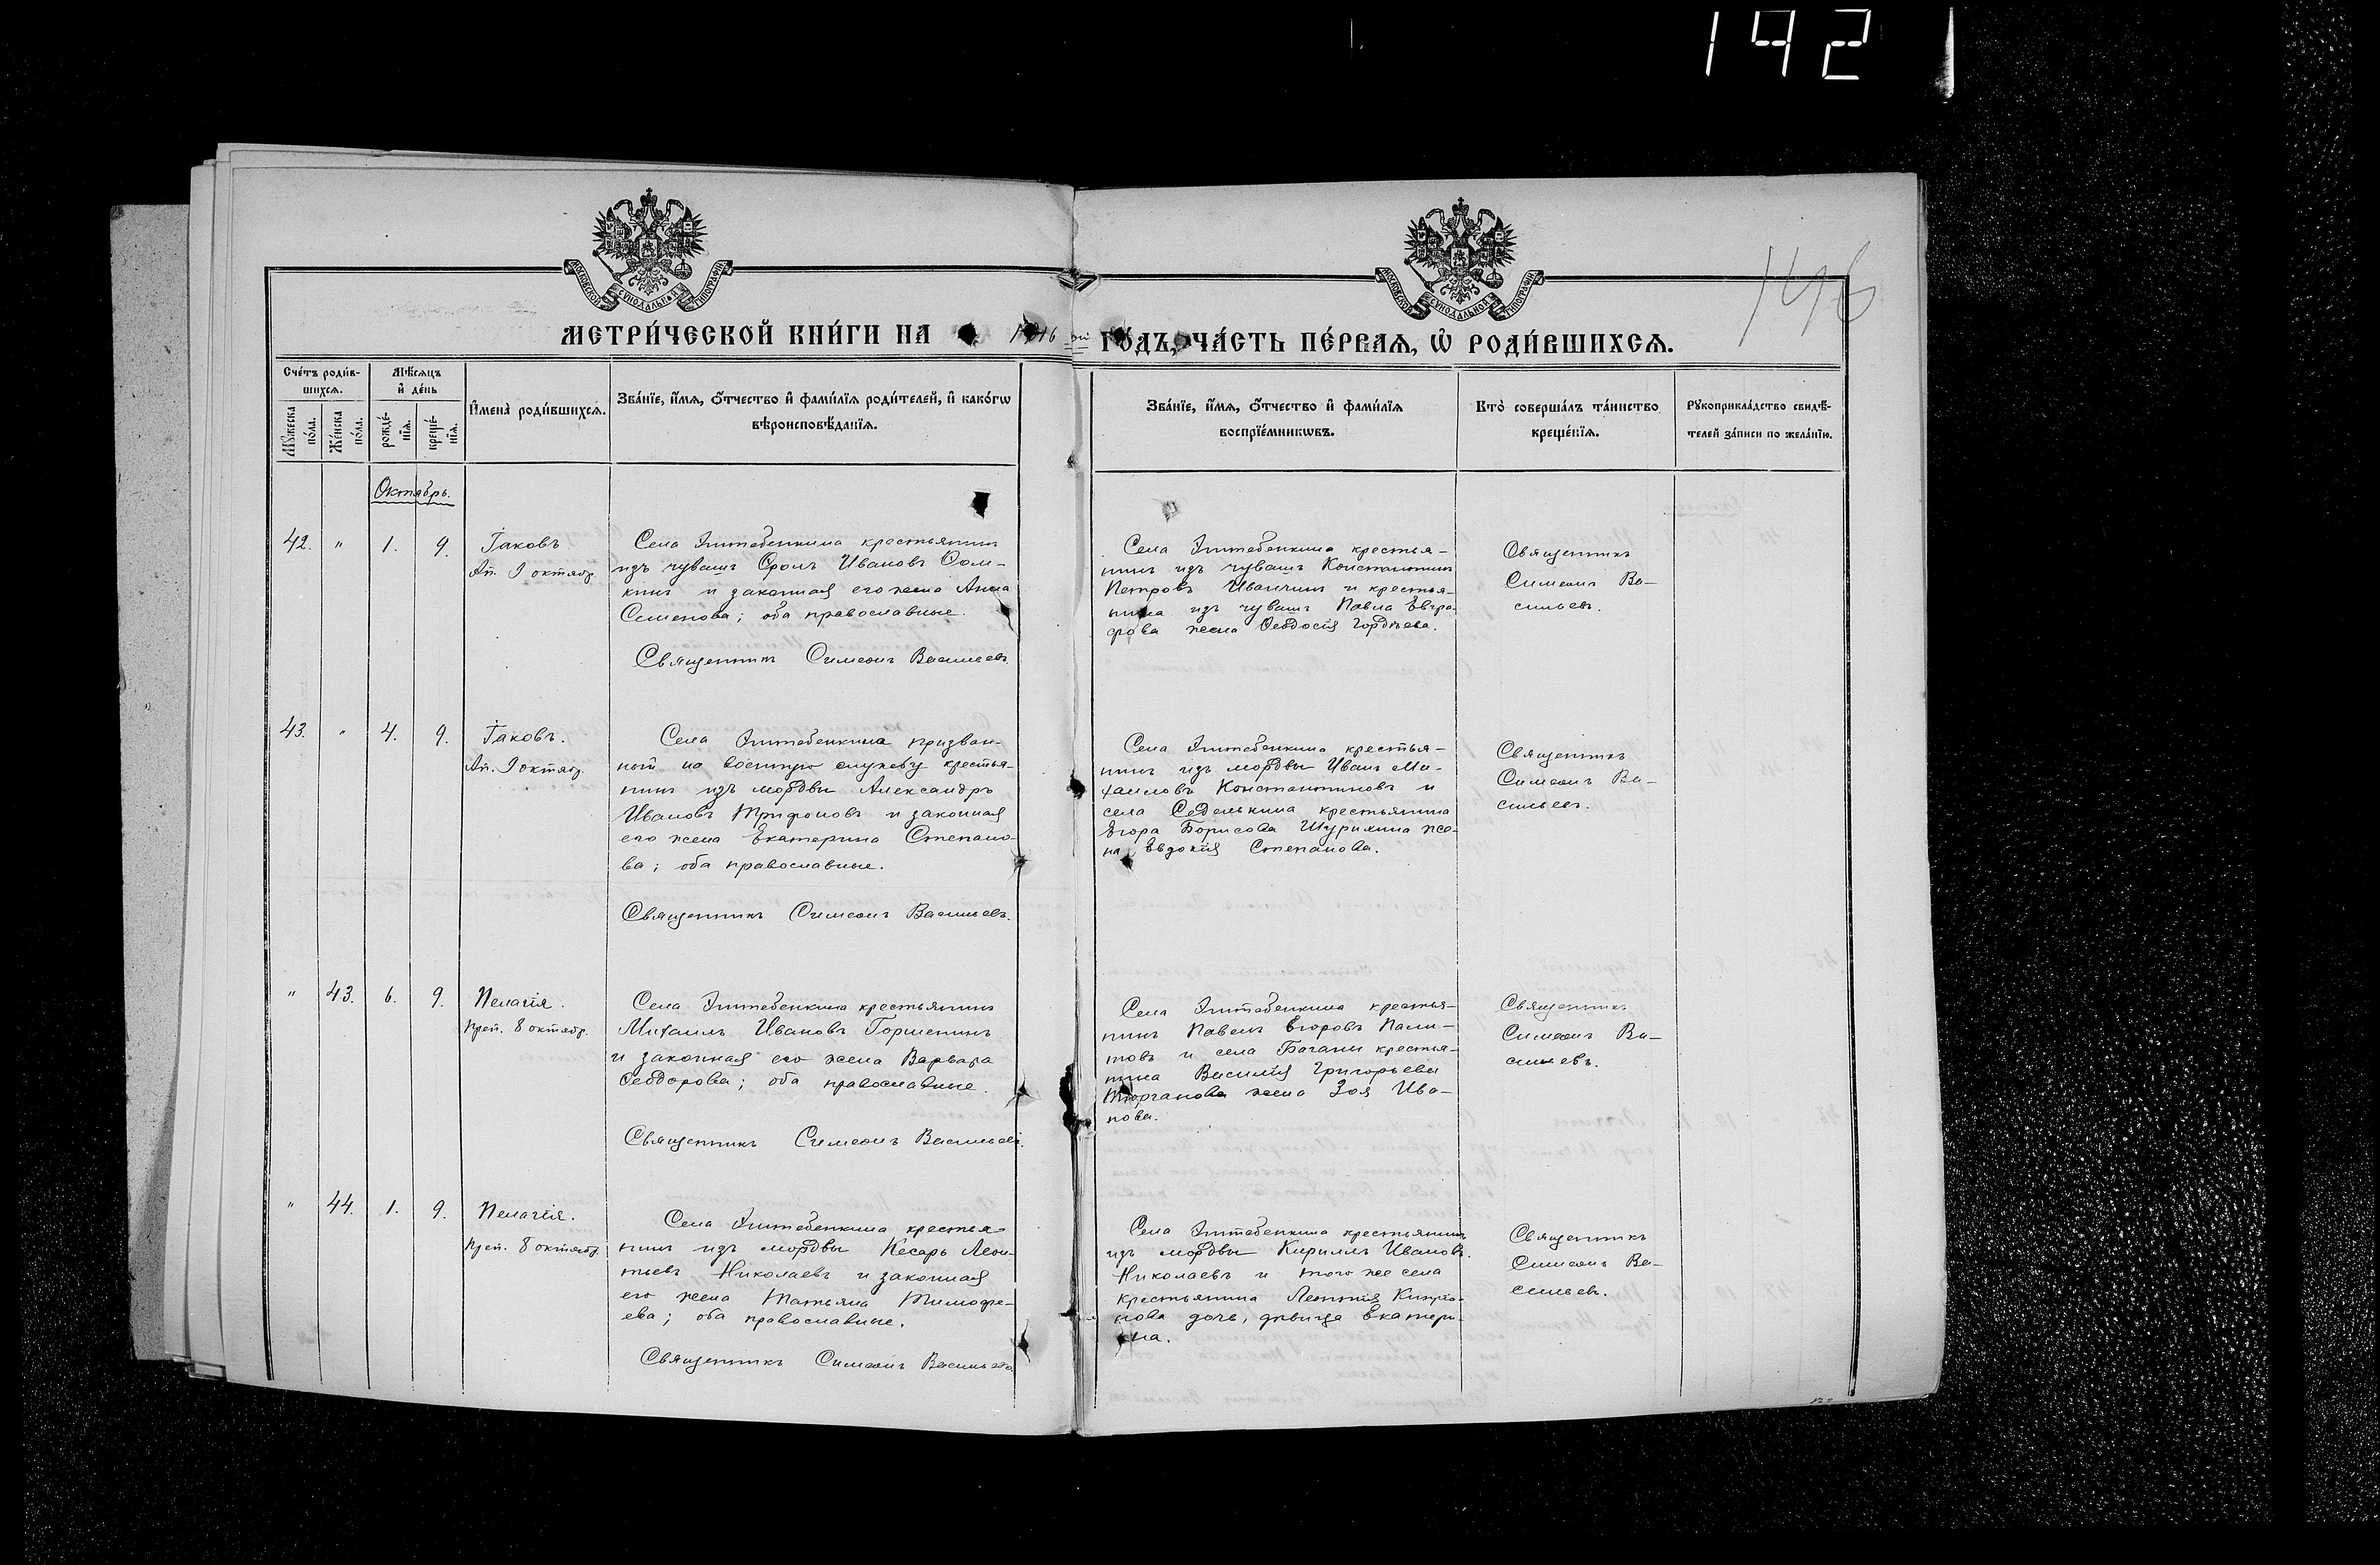 142
146
МОСКОВСКОЙ СУНОДАЛЬНОЙ ТИПОГРАФІИ
МОСКОВСКОЙ СУНОДАЛЬНОЙ ТИПОГРАФІИ
МЕТРИ́ЧЕСКОЙ КНИ́ГИ НА 1916 ой ГО́ДЪ, ЧА́СТЬ ПЕ́РВАѦ, Ѡ҆ РОДИ́ВШИХСѦ.
Сче́тъ роди́в-
шихсѧ.
Мꙋ́жеска
по́ла.
Же́нска
по́ла.
Мѣ́сѧцъ
и҆ де́нь
рожде́-
нїѧ.
креще́-
нїѧ.
И҆мена̀ роди́вшихсѧ.
Зва́нїе, и҆́мѧ, ѻ҆́тчество и҆ фами́лїѧ роди́телей, и҆ како́гѡ
вѣроисповѣ́данїѧ.
Зва́нїе, и҆́мѧ, ѻ҆́тчество и҆ фами́лїѧ
воспрїе́мникѡвъ.
Кто̀ соверша́лъ та́инство
креще́нїѧ.
Рꙋкоприкла́дство свидѣ́-
телей за́писи по жела́нїю.
Октябрь.
42. " 1. 9.
Іаковъ
Ап. 9 октябр.
Села Эштебенкина крестьянинъ
изъ чувашъ Фролъ Ивановъ Сом-
кинъ и законная его жена Анна
Семенова; оба православные.
Священникъ Симеонъ Васильевъ
Села Эштебенкина крестья-
нинъ изъ чувашъ Константинъ
Петровъ Иваичкинъ и крестья-
нина изъ чувашъ Павла Евгра-
фова жена Ѳеодосія Гордѣева.
Священникъ
Симеонъ Ва-
сильевъ.
43. " 4. 9.
Іаковъ.
Ап. 9 октябр.
Села Эштебенкина призван-
ный на военную службу крестья-
нинъ изъ мордвы Александръ
Ивановъ Трифоновъ и законная
его жена Екатерина Степано-
ва; оба православные.
Священникъ Симеонъ Васильевъ.
Села Эштебенкина крестья-
нинъ изъ мордвы Иванъ Ми-
хаиловъ Константиновъ и
села Седелькина крестьянина
Егора Борисова Шурихина же-
на Евдокія Степанова.
Священникъ
Симеонъ Ва-
сильевъ.
" 43. 6. 9.
Пелагія.
Преп. 8 октябр.
Села Эштебенкина крестьянинъ
Михаилъ Ивановъ Горшенинъ
и законная его жена Варвара
Ѳеодорова; оба православные.
Священникъ Симеонъ Васильевъ.
Села Эштебенкина крестья-
нинъ Павелъ Егоровъ Пами-
товъ и села Баганы крестья-
нина Василія Григорьева
Тюрганова жена Зоя Ива-
нова.
Священникъ
Симеонъ Ва-
сильевъ.
" 44. 1. 9.
Пелагія.
Преп. 8 октябр.
Села Эштебенкина крестья-
нинъ изъ мордвы Кесарь Леон-
тьевъ Николаевъ и законная
его жена Татьяна Тимофе-
ева; оба православные.
Священникъ Симеонъ Васильевъ
Села Эштебенкина крестьянинъ
изъ мордвы Кириллъ Ивановъ
Николаевъ и того же села
крестьянина Леонтія
дочь, дѣвица Екатери-
на.
Священникъ
Симеонъ Ва-
сильевъ.